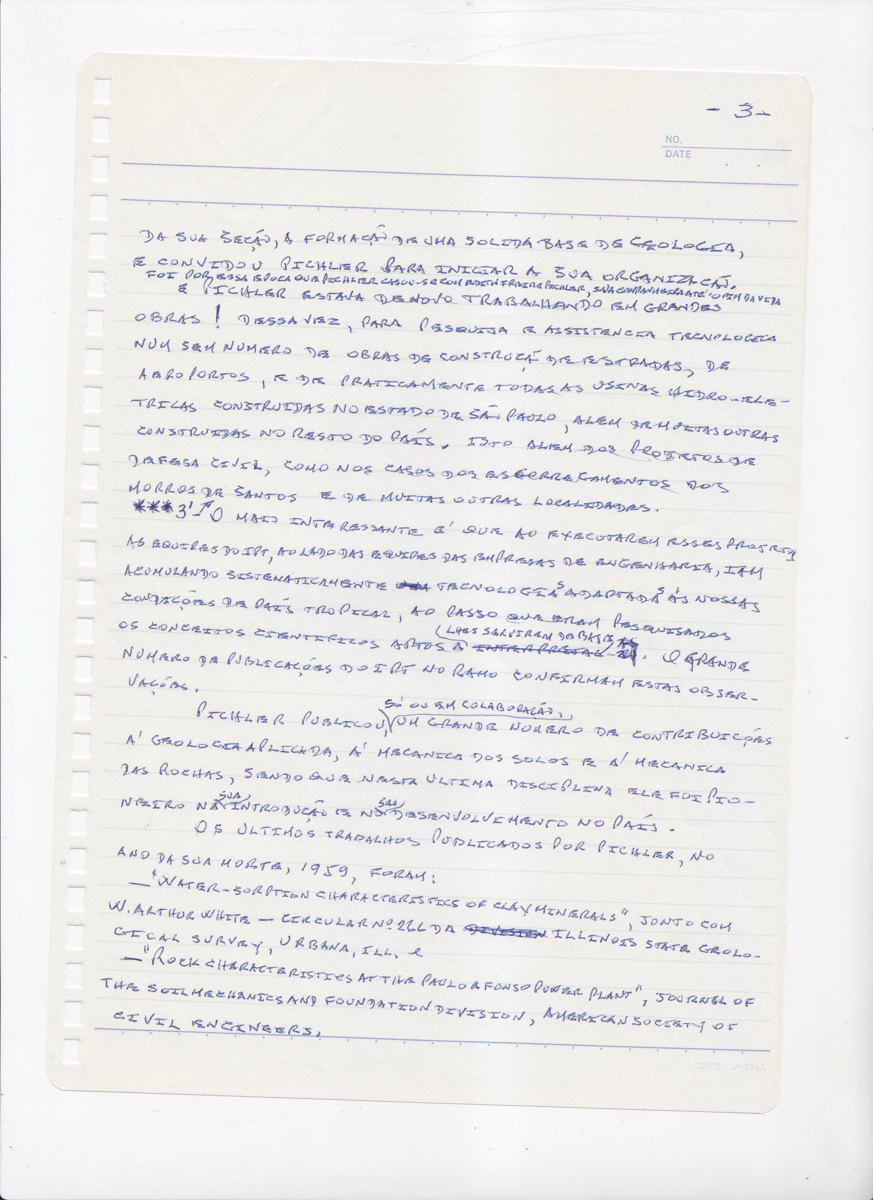 - 3 -
NO.
DATE
DA SUA SEÇÃO, A FORMAÇÃO DE UMA SOLIDA BASE DE GEOLOGIA,
E CONVIDOU PICHLER PARA INICIAR A SUA ORGANIZAÇÃO.
FOI POR ESSA EPOCA QUE PICHLER CASOU-SE COM FREIRE PICHLER, SUA COMPANHEIRA ATÉ O FIM DA VIDA
E PICHLER ESTAVA DE NOVO TRABALHANDO EM GRANDES
OBRAS! DESSA VEZ, PARA PESQUISA E ASSISTENCIA TECNOLOGICA
NUM SEM NUMERO DE OBRAS DE CONSTRUÇÃO DE ESTRADAS, DE
AEROPORTOS, E DE PRATICAMENTE TODAS AS USINAS HIDRO-ELE-
TRICAS CONSTRUIDAS NO ESTADO DE SÃO PAULO, ALEM DE MUITAS OUTRAS
CONSTRUIDAS NO RESTO DO PAÍS. ISTO ALEM DOS PROJETOS DE
DEFESA CIVIL, COMO NOS CASOS DOS ESCORREGAMENTOS DOS
MORROS DE SANTOS E DE MUITAS OUTRAS LOCALIDADES.
*** 3' O MAIS INTERESSANTE E' QUE AO EXECUTAREM ESSES PROJETOS
AS EQUIPES DO IPT, AO LADO DAS EQUIPES DAS EMPRESAS DE ENGENHARIA, IAM
ACUMULANDO SISTEMATICAMENTE TECNOLOGIAS ADAPTADAS ÀS NOSSAS
CONDIÇÕES DE PAÍS TROPICAL, AO PASSO QUE ERAM PESQUISADOS
LHES SERVIREM DE BASE
OS CONCEITOS CIENTIFICOS APTOS A INTERPRETAL-. O GRANDE
NUMERO DE PUBLICAÇÕES DO IPT NO RAMO CONFIRMAM ESTAS OBSER-
VAÇÕES.
SÓ OU EM COLABORAÇÃO,
PICHLER PUBLICOU, UM GRANDE NUMERO DE CONTRIBUIÇÕES
A' GEOLOGIA APLICADA, A' MECANICA DOS SOLOS E A' MECANICA
DAS ROCHAS, SENDO QUE NESTA ULTIMA DISCIPLINA ELE FOI PIO-
SUA SEU
NEIRO NA INTRODUÇÃO E NO DESENVOLVIMENTO NO PAÍS.
OS ULTIMOS TRABALHOS PUBLICADOS POR PICHLER, NO
ANO DA SUA MORTE, 1959, FORAM:
— "WATER-SORPTION CHARACTERISTICS OF CLAY MINERALS", JUNTO COM
W. ARTHUR WHITE — CIRCULAR Nº 266 DA DIVISION ILLINOIS STATE GEOLO-
GICAL SURVEY, URBANA, ILL, e
— "ROCK CHARACTERISTICS AT THE PAULO AFONSO POWER PLANT", JOURNAL OF
THE SOIL MECHANICS AND FOUNDATION DIVISION, AMERICAN SOCIETY OF
CIVIL ENGINEERS.